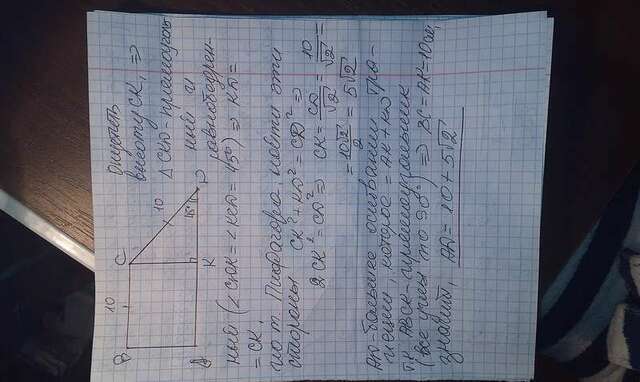 B 10 C
10
45°
A K D
Опустить
высоту СК, ⇒
△ СКD - прямоуголь
ный и
равнобедрен-
ный (∠CDK = ∠KCD = 45°) ⇒ KD =
= CK,
по т. Пифагора найти эти
стороны CK² + KD² = CD² ⇒
2CK² = CD² ⇒ CK = CD/√2 = 10/√2 =
= 10√2/2 = 5√2
AD - большее основание тра-
пеции, которое = AK + KD
т.к. ABCK - прямоугольник
(все углы по 90°) ⇒ BC = AK = 10 см,
значит, AD = 10 + 5√2